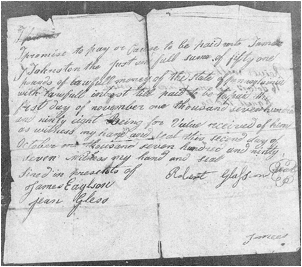 I promise to pay or Cause to be paid unto
Johnston the Just and full sume of fifty one
pounds of Lawfull money of the State of
with Lawfull interest till paid to be paid
first day of november one thousand seven hundred
and ninty eight being for Value received of him
as witness my hand and seal this day of
October one thousand seven hundred and ninty
seven witness my hand and seal
Sined in presents of
James Eagleson Robert Glasson Seal
jean Gless
James